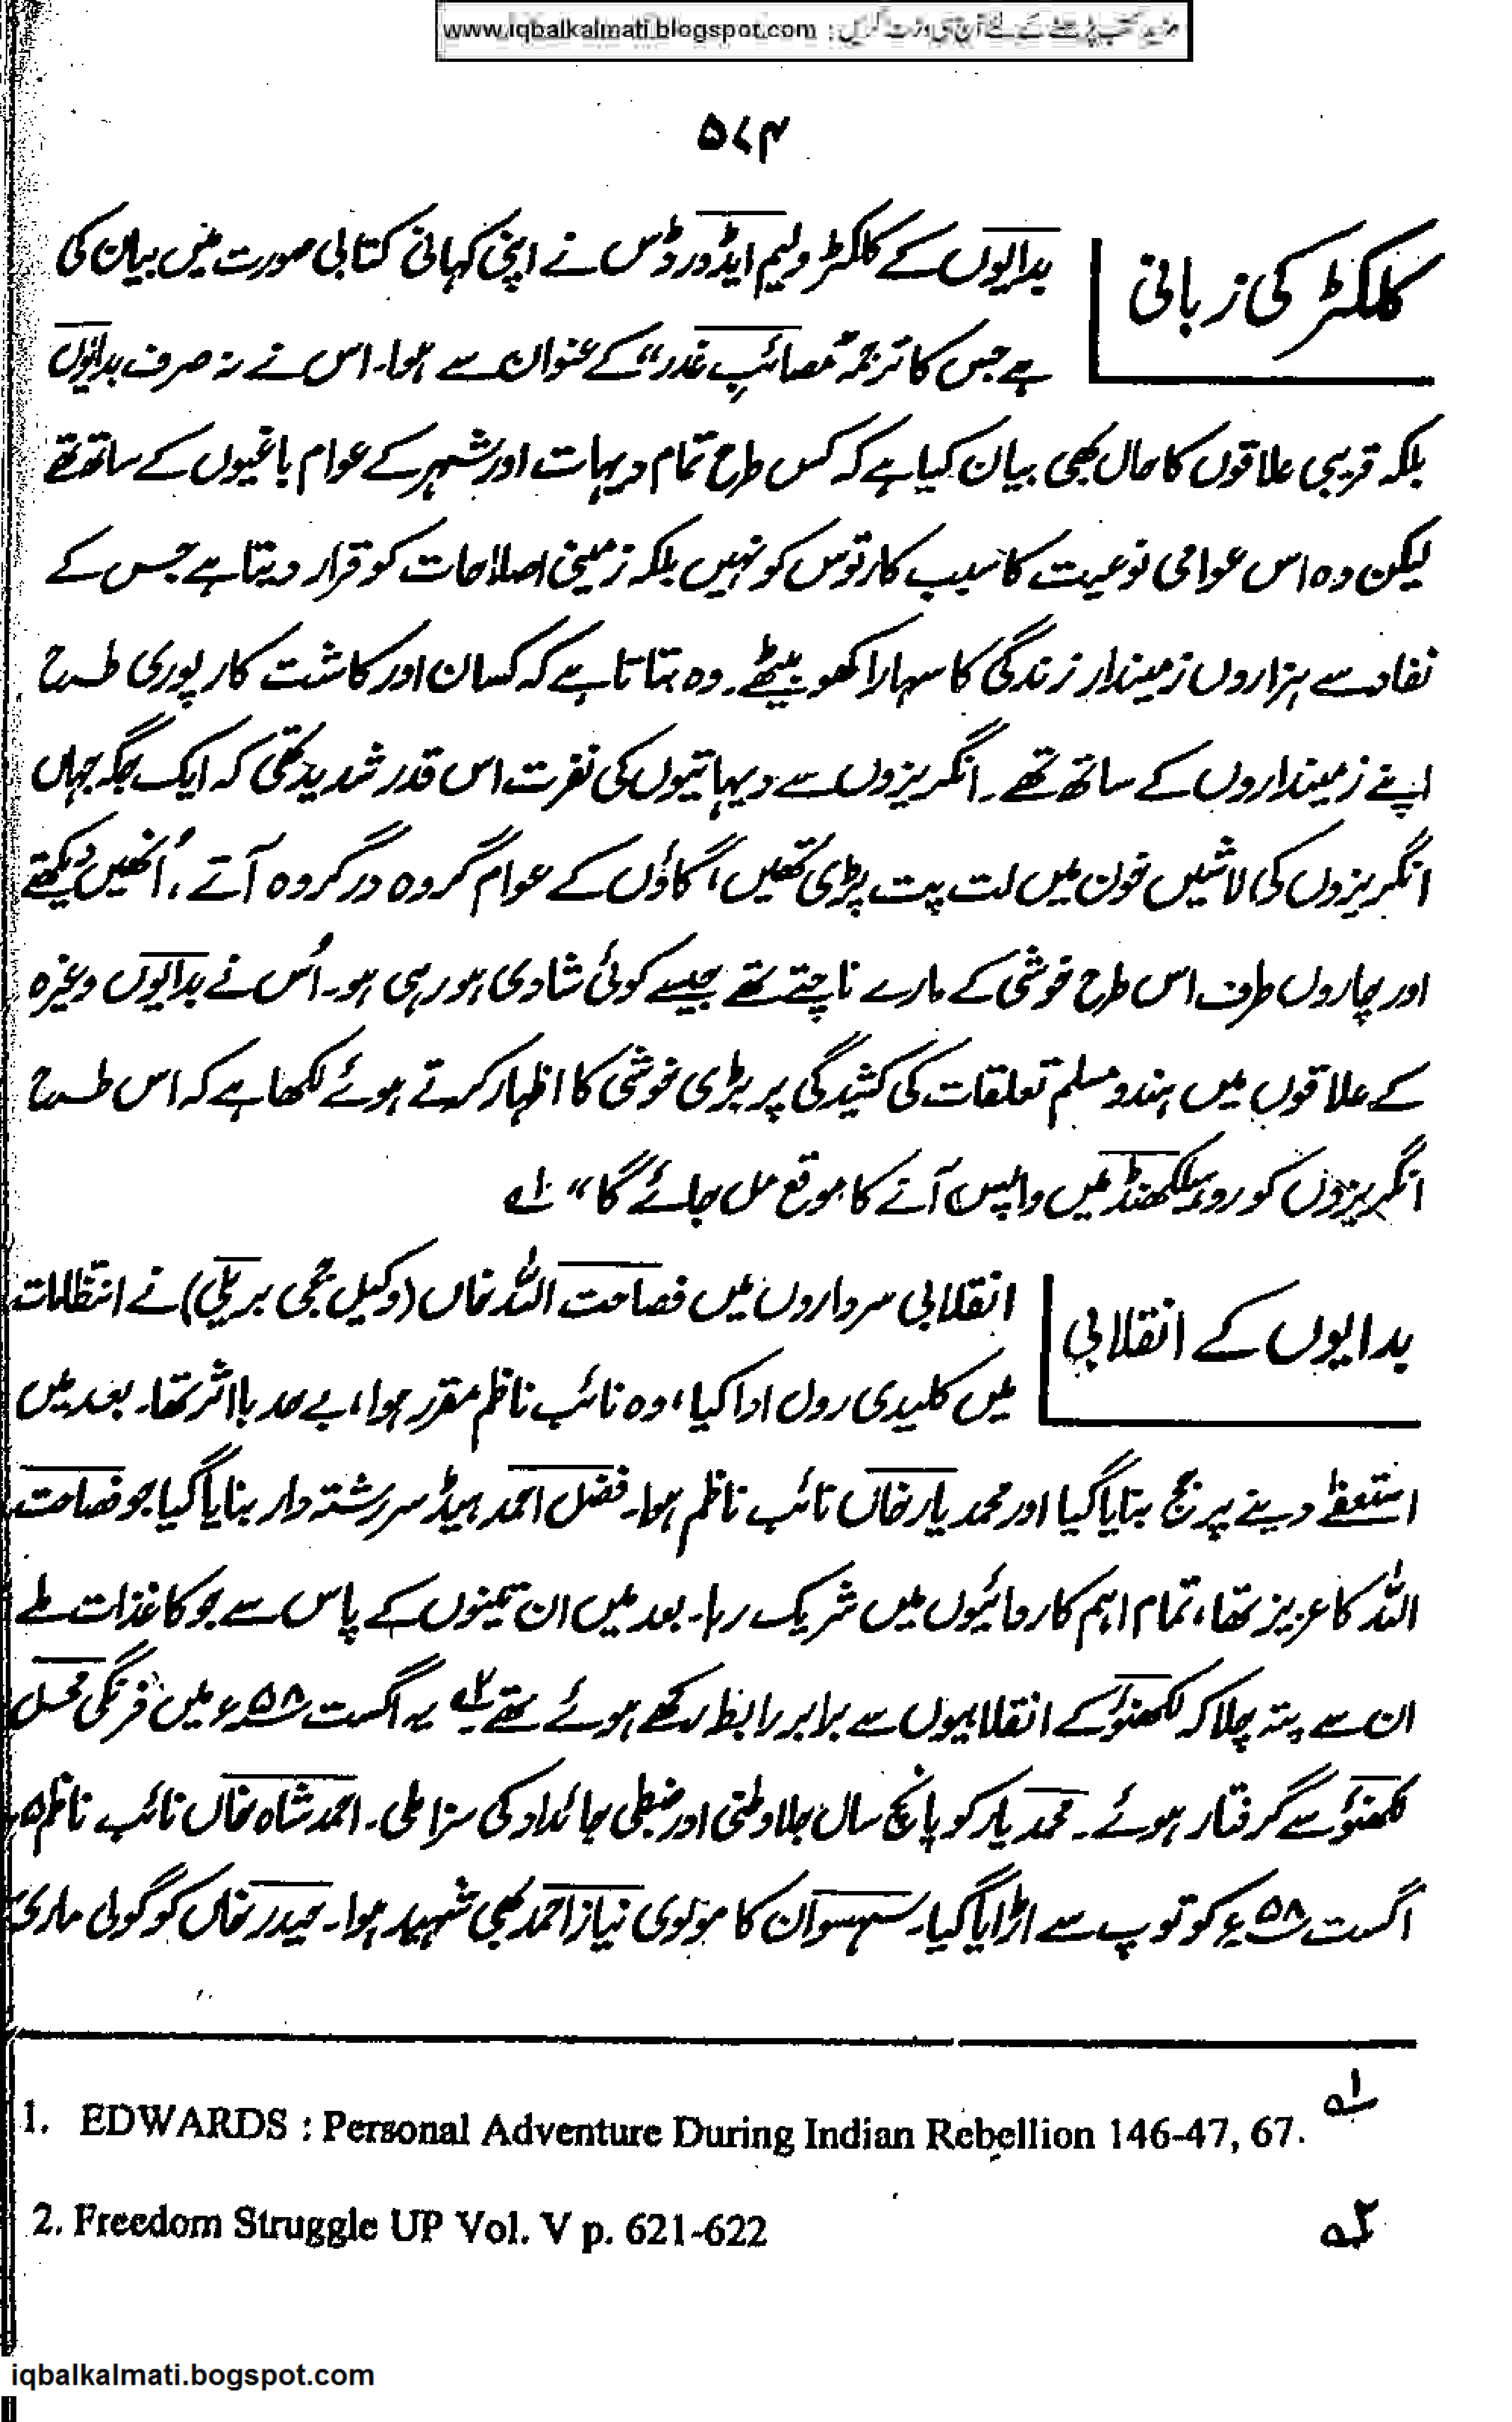 مزید کتب پڑھنے کے لئے آج ہی وزٹ کریں : www.iqbalkalmati.blogspot.com
۵۷۴
کلکٹر کی زبانی
بدایوں کے کلکٹر ولیم ایڈورڈس نے اپنی کہانی کتابی صورت میں بیان کی
ہے جس کا ترجمہ "مصائبِ غدر" کے عنوان سے ہوا۔ اس نے نہ صرف بدایوں
بلکہ قریبی علاقوں کا حال بھی بیان کیا ہے کہ کس طرح تمام دیہات اور شہر کے عوام باغیوں کے ساتھ تھے
لیکن وہ اس عوامی نوعیت کا سبب کارتوس کو نہیں بلکہ زمینی اصلاحات کو قرار دیتا ہے جس کے
نفاد سے ہزاروں زمیندار زندگی کا سہارا کھو بیٹھے۔ وہ بتاتا ہے کہ کسان اور کاشت کار پوری طرح
اپنے زمینداروں کے ساتھ تھے۔ انگریزوں سے دیہاتیوں کی نفرت اس قدر شدید تھی کہ ایک جگہ جہاں
انگریزوں کی لاشیں خون میں لت پت پڑی تھیں، گاؤں کے عوام گروہ در گروہ آتے، اُنھیں دیکھتے
اور چاروں طرف اس طرح خوشی کے مارے ناچتے تھے جیسے کوئی شادی ہو رہی ہو۔ اُس نے بدایوں وغیرہ
کے علاقوں میں ہندو مسلم تعلقات کی کشیدگی پر بڑی خوشی کا اظہار کرتے ہوئے لکھا ہے کہ اس طرح
انگریزوں کو روہیلکھنڈ میں واپس آنے کا موقع مل جائے گا" ۱ه
بدایوں کے انقلابی
انقلابی سرداروں میں فصاحت اللہ خاں (وکیل ججی بریلی) نے انتظامات
میں کلیدی رول ادا کیا، وہ نائب ناظم مقرر ہوا، بے حد با اثر تھا۔ بعد میں
استعفےٰ دینے پر جج بنایا گیا اور محمد یار خاں نائب ناظم ہوا۔ فضل احمد ہیڈ سررشتہ دار بنایا گیا جو فصاحت
اللہ کا عزیز تھا، تمام اہم کاروائیوں میں شریک رہا۔ بعد میں ان تینوں کے پاس سے جو کاغذات ملے
ان سے پتہ چلا کہ لکھنؤ کے انقلابیوں سے برابر رابطہ رکھے ہوئے تھے ۲ه یہ اگست ۵۸ء میں فرنگی محل
لکھنؤ سے گرفتار ہوئے۔ محمد یار کو پانچ سال جلاوطنی اور ضبطی جائداد کی سزا ملی۔ احمد شاہ خاں نائب ناظم ۵،
اگست ۵۸ء کو توپ سے اڑایا گیا۔ سہسوان کا مولوی نیاز احمد بھی شہید ہوا۔ حیدر خاں کو گولی ماری
1. EDWARDS : Personal Adventure During Indian Rebellion 146-47, 67. ۱ه
2. Freedom Struggle UP Vol. V p. 621-622 ۲ه
iqbalkalmati.bogspot.com